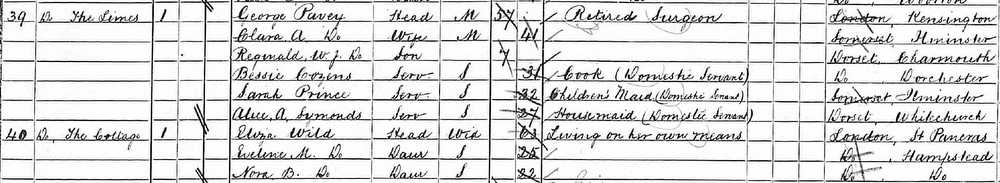 39 Do The Limes 1 George Pavey Head M 57 Retired Surgeon London, Kensington
Clara A. Do Wife M 41 Somerset, Ilminster
Reginald, W. J. Do Son 7 Dorset, Charmouth
Bessie Cozens Serv S 31 Cook (Domestic Servant) Do Dorchester
Sarah Prince Serv S 32 Children's Maid (Domestic Servant) Somerset, Ilminster
Alice, A, Symonds Serv S 27 Housemaid (Domestic Servant) Dorset, Whitchurch
40 Do The Cottage 1 Eliza Wild Head Wid 63 Living on her own means London, St Pancras
Eveline, M. Do Daur S 25 Do, Hampstead
Nora B. Do Daur S 22 Do Do